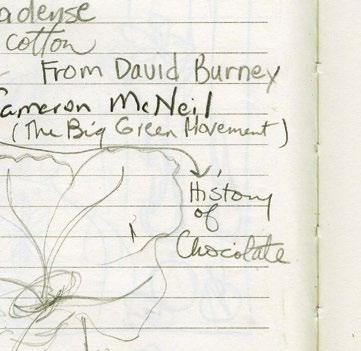 adense
cotton
From David Burney
Cameron McNeil
(The Big Green Movement)
History
of
Chocolate